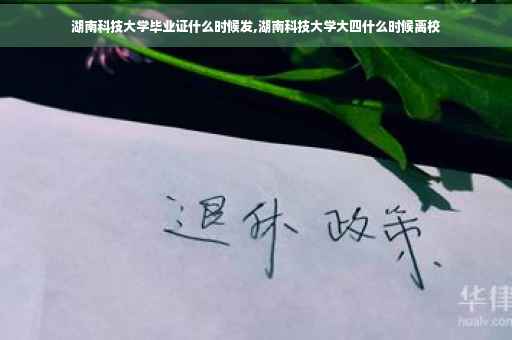 湖南科技大学毕业证什么时候发,湖南科技大学大四什么时候离校
退休 政策
华律
hualv.com